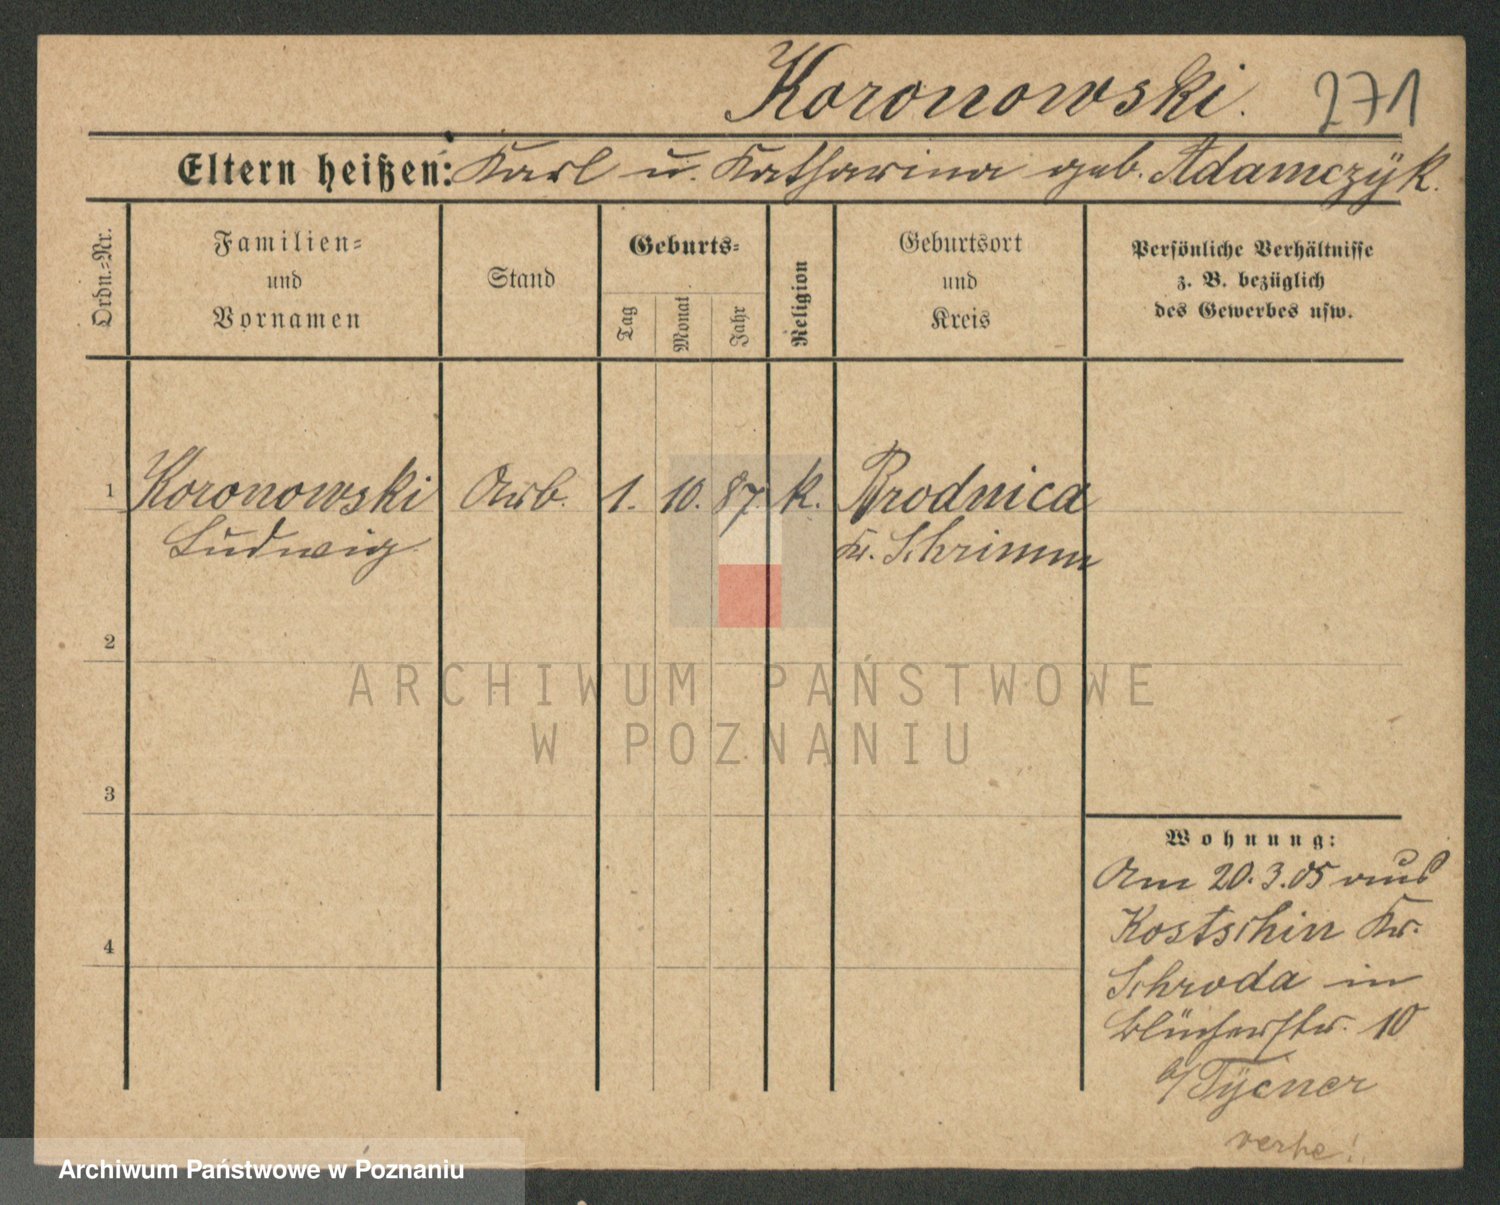 Koronowski. 271
Eltern heißen: Karl u. Katharina geb. Adamczÿk.
Ordn.=Nr.
Familien=
und
Vornamen
Stand
Geburts=
Tag
Monat
Jahr
Religion
Geburtsort
und
Kreis
Persönliche Verhältnisse
z. B. bezüglich
des Gewerbes usw.
1 Koronowski Arb. 1. 10. 87. k. Brodnica
Ludwig Kr. Schrimm
2
3
4
Wohnung:
Am 20.3.05 aus
Kostschin Kr.
Schroda in
Blücherstr. 10
b/ Tÿcner
ARCHIWUM PAŃSTWOWE
W POZNANIU
Archiwum Państwowe w Poznaniu